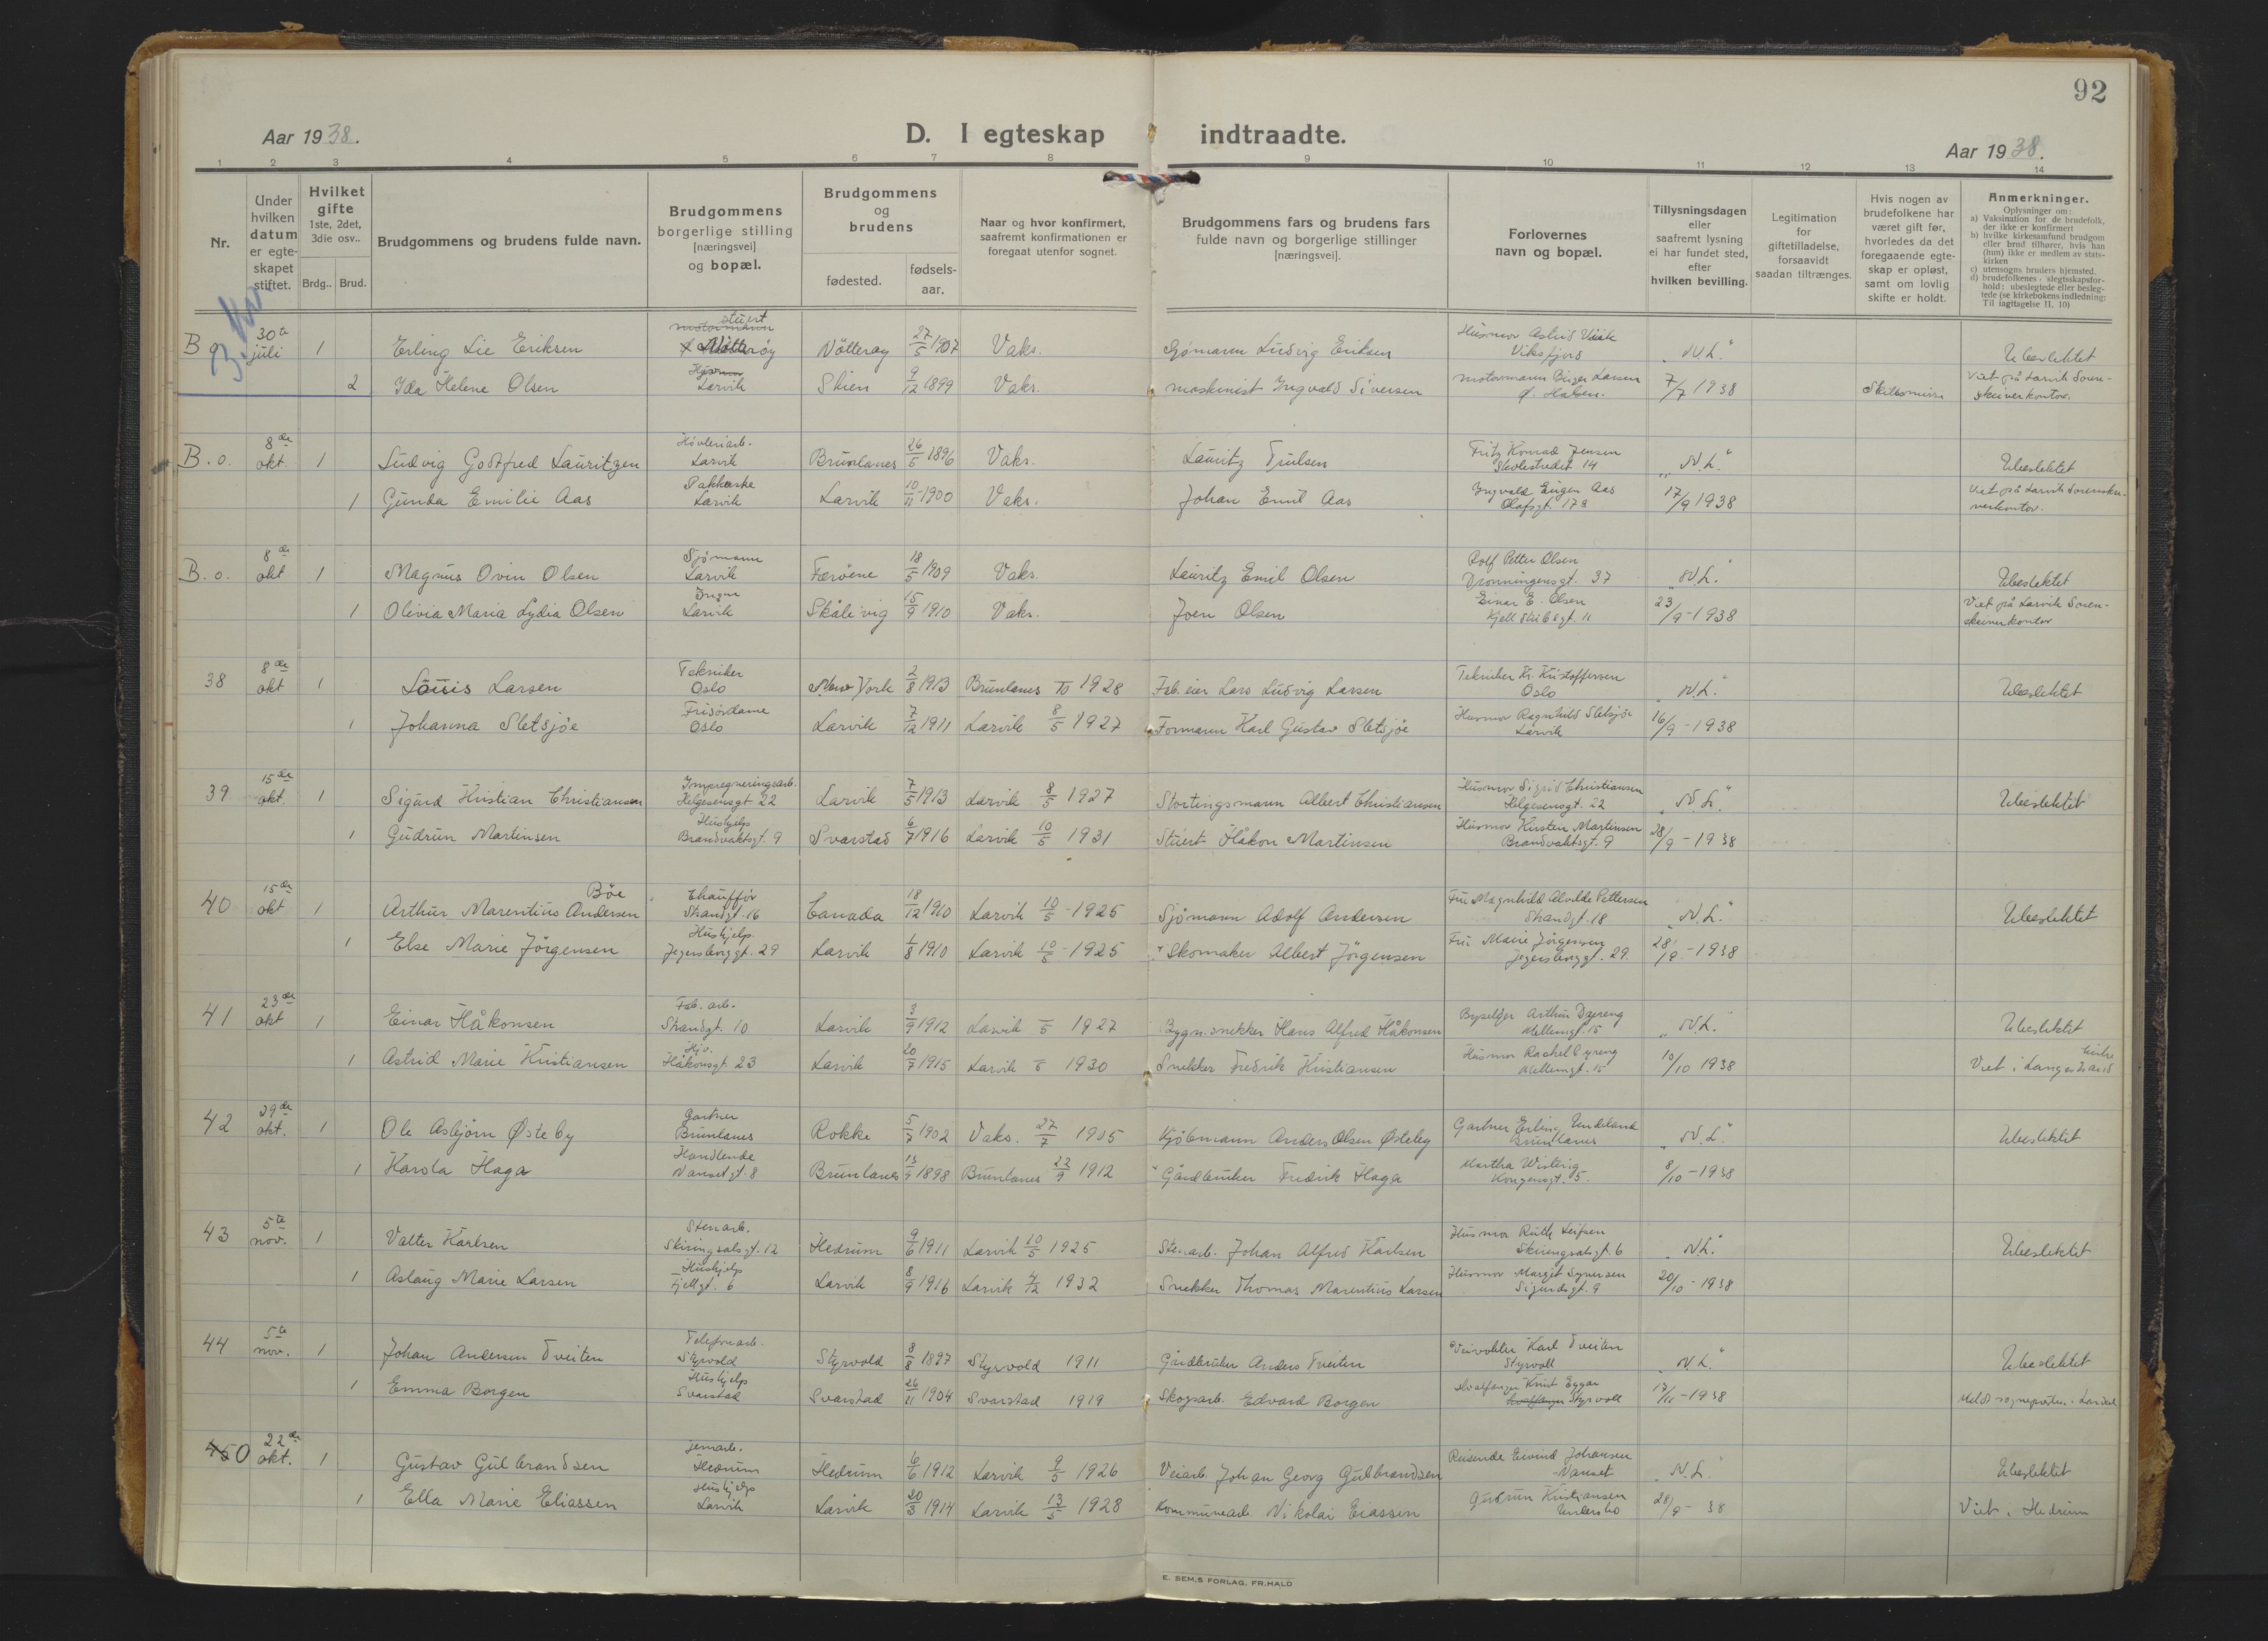 92
Aar 1938.
D. I egteskap indtraadte.
Aar 1938.
1 2 3 4 5 6 7 8 9 10 11 12 13 14
Nr.
Under hvilken datum er egteskapet stiftet.
Hvilket gifte 1ste, 2det, 3die osv..
Brdg.. Brud.
Brudgommens og brudens fulde navn.
Brudgommens borgerlige stilling [næringsvei] og bopæl.
Brudgommens og brudens
fødested.
fødsels-aar.
Naar og hvor konfirmert, saafremt konfirmationen er foregaat utenfor sognet.
Brudgommens fars og brudens fars fulde navn og borgerlige stillinger [næringsvei].
Forlovernes navn og bopæl.
Tillysningsdagen eller saafremt lysning ei har fundet sted, efter hvilken bevilling.
Legitimation for giftetilladelse, forsaavidt saadan tiltrænges.
Hvis nogen av brudefolkene har været gift før, hvorledes da det foregaaende egteskap er opløst, samt om lovlig skifte er holdt.
Anmerkninger.
Oplysninger om:
a) Vaksination for de brudefolk, der ikke er konfirmert
b) hvilke kirkesamfund brudgom eller brud tilhører, hvis han (hun) ikke er medlem av statskirken
c) utensogns bruders hjemsted.
d) brudefolkenes slegtsskapsforhold: ubeslegtede eller beslegtede (se kirkebokens indledning: Til iagttagelse II. 10)
3. kv.
B o 30te juli 1 Erling Lie Eriksen stuert Nötteröy Nötteröy 27/5 1907 Vaks. Sjömann Ludvig Eriksen Husmor Astrid Viksfjord „N.L.“ Ubeslektet
2 Ida Helene Olsen Larvik Skien 9/12 1899 Vaks. maskinist Ingvald Siversen motormann Birger Larsen 7/7 1938 Skilsmisse Viet på Larvik Sorenskriverkontor.
B.o. 8de okt. 1 Ludvig Godtfred Lauritzen Høvleriarb. Larvik Brunlanes 26/5 1896 Vaks. Lauritz Trulsen Fritz Konrad Jensen Skolestredet 14 „N.L.“ Ubeslektet
1 Gunda Emilie Aas Pakkerske Larvik Larvik 10/11 1900 Vaks. Johan Emil Aas Ingvald Eugen Aas Olafsgt. 17 B 17/9 1938 Viet på Larvik Sorenskriverkontor.
B.o. 8de okt 1 Magnus Ovin Olsen Sjömann Larvik Færöene 18/5 1909 Vaks. Lauritz Emil Olsen Rolf Petter Olsen Dronningensgt. 37 „N.L.“ Ubeslektet
1 Olivia Maria Lydia Olsen Ingen Larvik Skålivig 15/9 1910 Vaks. Joen Olsen Einar E. Olsen Kjell Skibsgt. 11 23/9-1938 Viet på Larvik Sorenskriverkontor
38 8de okt 1 Louis Larsen Tekniker Oslo New York 2/8 1913 Brunlanes /10 1928 Fab. eier Lars Ludvig Larsen Tekniker Kr. Kristoffersen Oslo „N.L.“ Ubeslektet
1 Johanna Sletsjöe Frisördame Oslo Larvik 7/12 1911 Larvik 8/5 1927 Formann Karl Gustav Sletsjöe Husmor Ragnhild Sletsjöe Larvik 16/9-1938
39 15de okt. 1 Sigurd Kristian Christiansen Impregneringsarb. Helgesensgt 22 Larvik 7/5 1913 Larvik 8/5 1927 Stortingsmann Albert Christiansen Husmor Sigrid Christiansen Helgesensgt. 22 „N.L.“ Ubeslektet
1 Gudrun Martinsen Hushjelp Brandvaktsgt. 9 Svarstad 6/7 1916 Larvik 10/5 1931 Stuert Håkon Martinsen Husmor Kirsten Martinsen Brandvaktsgt. 9 28/9-1938
40 15de okt 1 Arthur Marentius Andersen Böe Chaufför Strandgt. 16 Canada 18/12 1910 Larvik 10/5-1925 Sjömann Adolf Andersen Fru Magnhild Alvilde Pettersen Strandgt. 18 „N.L.“ Ubeslektet
1 Else Marie Jörgensen Hushjelp. Jegersborggt. 29 Larvik 1/8 1910 Larvik 10/5-1925 Skomaker Albert Jörgensen Fru Marie Jörgensen Jegersborggt. 29. 28/9-1938
41 23de okt 1 Einar Håkonsen Fab. arb. Strandgt. 10 Larvik 3/9 1912 Larvik /5 1927 Bygn. snekker Hans Alfred Håkonsen Arthur Mellemgt. 15 „N.L.“ Ubeslektet
1 Astrid Marie Kristiansen Hjv. Håkonsgt. 23 Larvik 20/7 1915 Larvik /5 1930 Snekker Fredrik Kristiansen Husmor Rachel Mellemgt. 15 10/10 1938 Viet i Langestrand kirke
42 29de okt. 1 Ole Asbjörn Østeby Gartner Brunlanes Rokke 5/7 1902 Vaks. 27/7 1905 Kjöbmann Anders Olsen Østeby Gartner Erling Brunlanes „N.L.“ Ubeslektet
1 Karola Haga Handlende Nansetgt. 8 Brunlanes 1898 Brunlanes 22/9 1912 Gårdbruker Fredrik Haga Martha Wisting Kongensgt. 5. 8/10-1938
43 5te nov. 1 Valter Karlsen Stenarb. Skiringsalsgt. 12 Hedrum 9/6 1911 Larvik 10/5 1925 Stenarb. Johan Alfred Karlsen Husmor Ruth Leifsen Skiringsalsgt. 6 „N.L.“ Ubeslektet
1 Aslaug Marie Larsen Hushjelp Fjellgt. 6 Larvik 8/9 1916 Larvik 4/12 1932 Snekker Thomas Marentius Larsen Husmor Margit Syversen Sigurdsgt. 9 20/10-1938
44 5te nov. 1 Johan Andersen Tveiten Telefonarb. Styrvold Styrvold 8/8 1897 Styrvold 1911 Gårdbruker Anders Tveiten Veivokter Karl Tveiten Styrvoll „N.L.“ Ubeslektet
1 Emma Borgen Hushjelp Svarstad Svarstad 26/11 1904 Svarstad 1919 Skogsarb. Edvard Borgen Hvalfanger Knut Styrvoll 17/11-1938 Meldt sognepresten i Lardal
450 22de okt. 1 Gustav Gulbrandsen jernarb. Hedrum Hedrum 6/6 1912 Larvik 9/5 1926 Veiarb. Johan Georg Gulbrandsen Reisende Eivind Johansen Nanset „N.L.“ Ubeslektet
1 Ella Marie Eliassen Hushjelp Larvik Larvik 20/3 1914 Larvik 13/5 1928 Kommunearb. Nikolai Eiassen Gudrun Kristiansen Undersbo 28/9-38 Viet i Hedrum
E. SEM.S FORLAG, FR.HALD